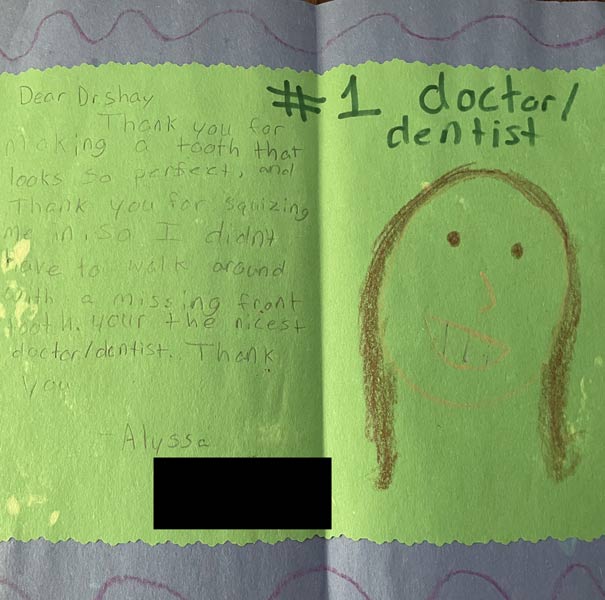 Dear Dr.shay
Thank you for
making a tooth that
looks so perfect, and
Thank you for squizing
me in. So I didnt
have to walk around
with a missing front
tooth. your the nicest
doctor/dentist. Thank
you
- Alyssa
#1 doctor/
dentist